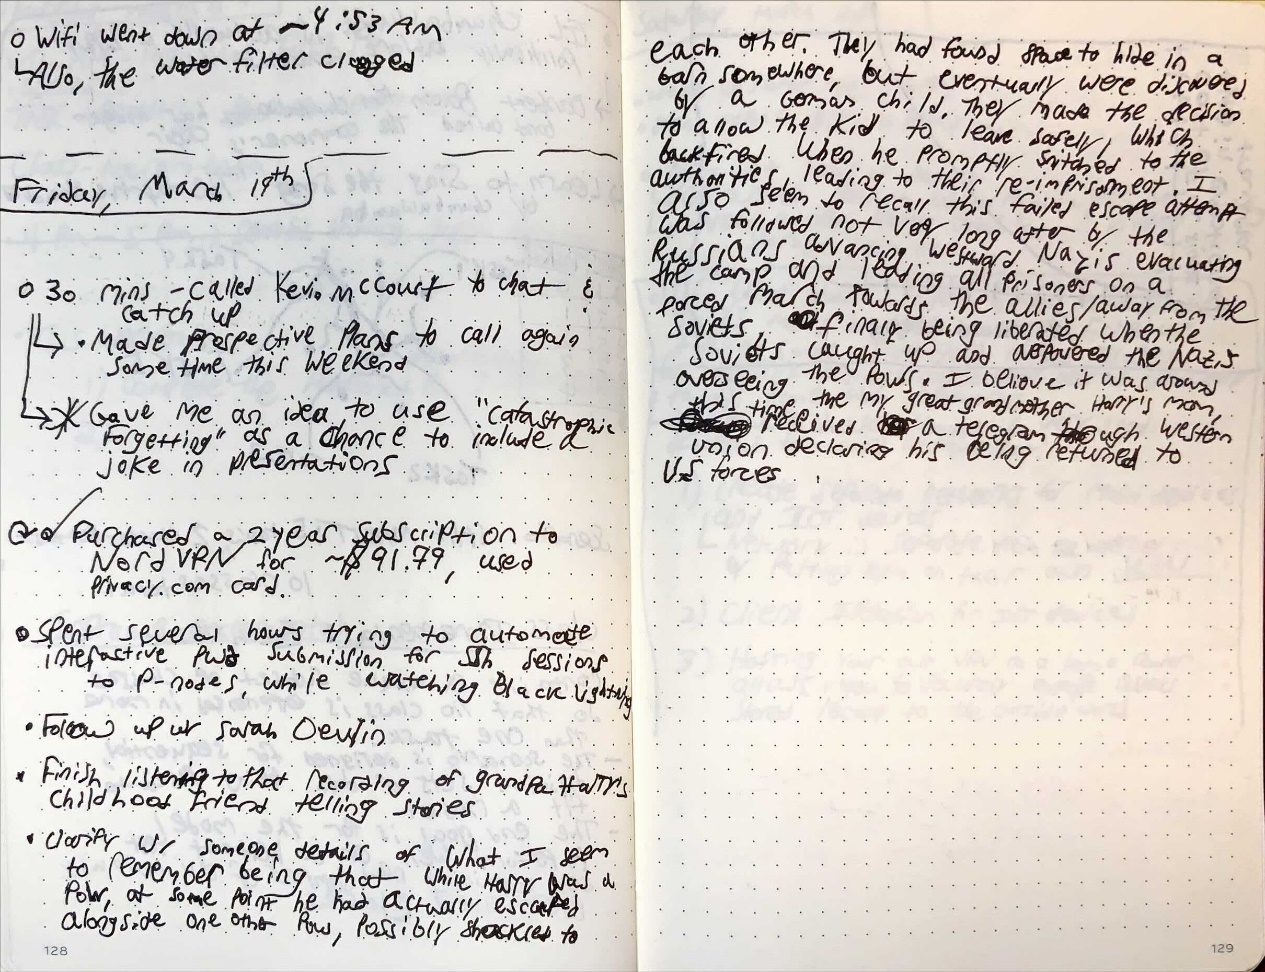 o Wifi went down at ~4:53 AM
↳Also, the water filter clogged
Friday, March 19th
o 30 mins - called Kevin McCourt to chat &
catch up
↳ • Made prospective plans to call again
some time this weekend
↳ * Gave me an idea to use "catastrophic
forgetting" as a chance to include a
joke in presentations
Purchased a 2 year subscription to
Nord VPN for ~$91.79, used
privacy.com card.
• Spent several hours trying to automate
interactive pwd submission for ssh sessions
to P-nodes, while watching Black Lightning
• Follow up w/ Sarah Devlin
• Finish listening to that recording of grandpa Harry's
childhood friend telling stories
• Clarify w/ someone details of what I seem
to remember being that while Harry was a
POW, at some point he had actually escaped
alongside one other POW, possibly shackled to
128
each other. They had found space to hide in a
barn somewhere, but eventually were discovered
by a German child. They made the decision
to allow the kid to leave safely, which
backfired when he promptly snitched to the
authorities, leading to their re-imprisonment. I
also seem to recall this failed escape attempt
was followed not very long after by the
Russians advancing westward, Nazis evacuating
the camp and leading all prisoners on a
forced march towards the allies/away from the
Soviets, finally being liberated when the
Soviets caught up and overpowered the Nazis
overseeing the POWs. I believe it was around
this time the my great grandmother Harry's mom,
received a telegram through western
union declaring his being returned to
U.S. forces
129